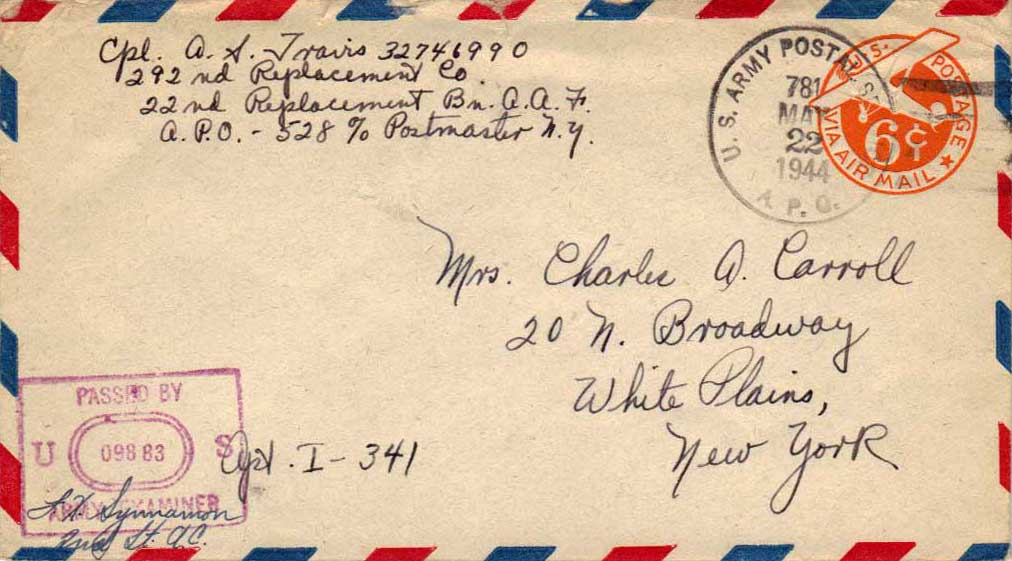 Cpl. A. S. Travis 32746990
292nd Replacement Co.
22nd Replacement Bn. A.A.F.
A.P.O. - 528 % Postmaster N.Y.
U. S. ARMY POSTAL S
781
MAY
22
1944
A. P. O.
U.S. POSTAGE
6¢
VIA AIR MAIL
Mrs. Charles A. Carroll
20 N. Broadway
White Plains,
New York
Apt. I - 341
PASSED BY
U 09883 S
ARMY EXAMINER
2nd Lt. A.C.